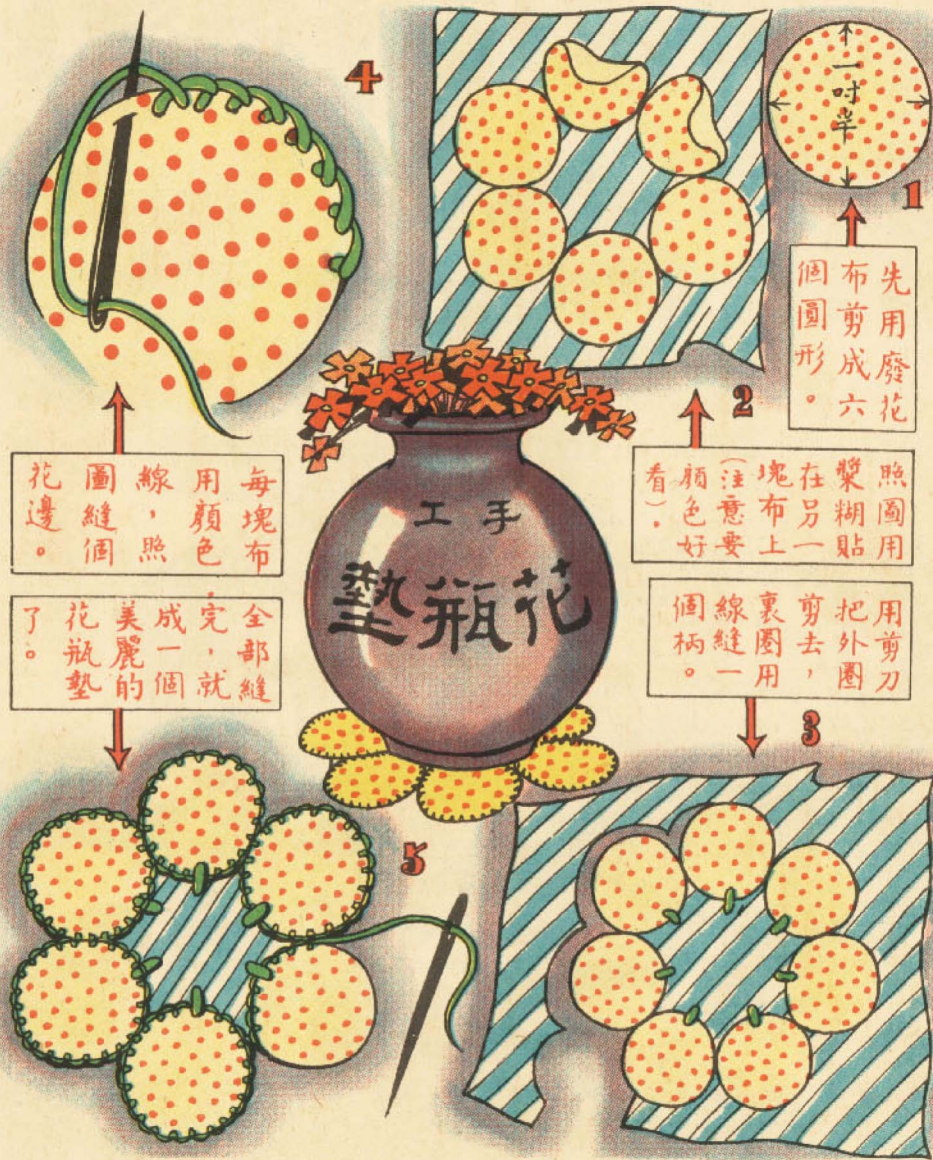 手工
花瓶墊
1
一吋半
先用廢花
布剪成六
個圓形。
2
照圖用
漿糊貼
在另一
塊布上
(注意要
顏色好
看)。
3
用剪刀
把外圈
剪去，
裏圈用
線縫一
個柄。
4
每塊布
用顏色
線，照
圖縫個
花邊。
5
全部縫
完，就
成一個
美麗的
花瓶墊
了。